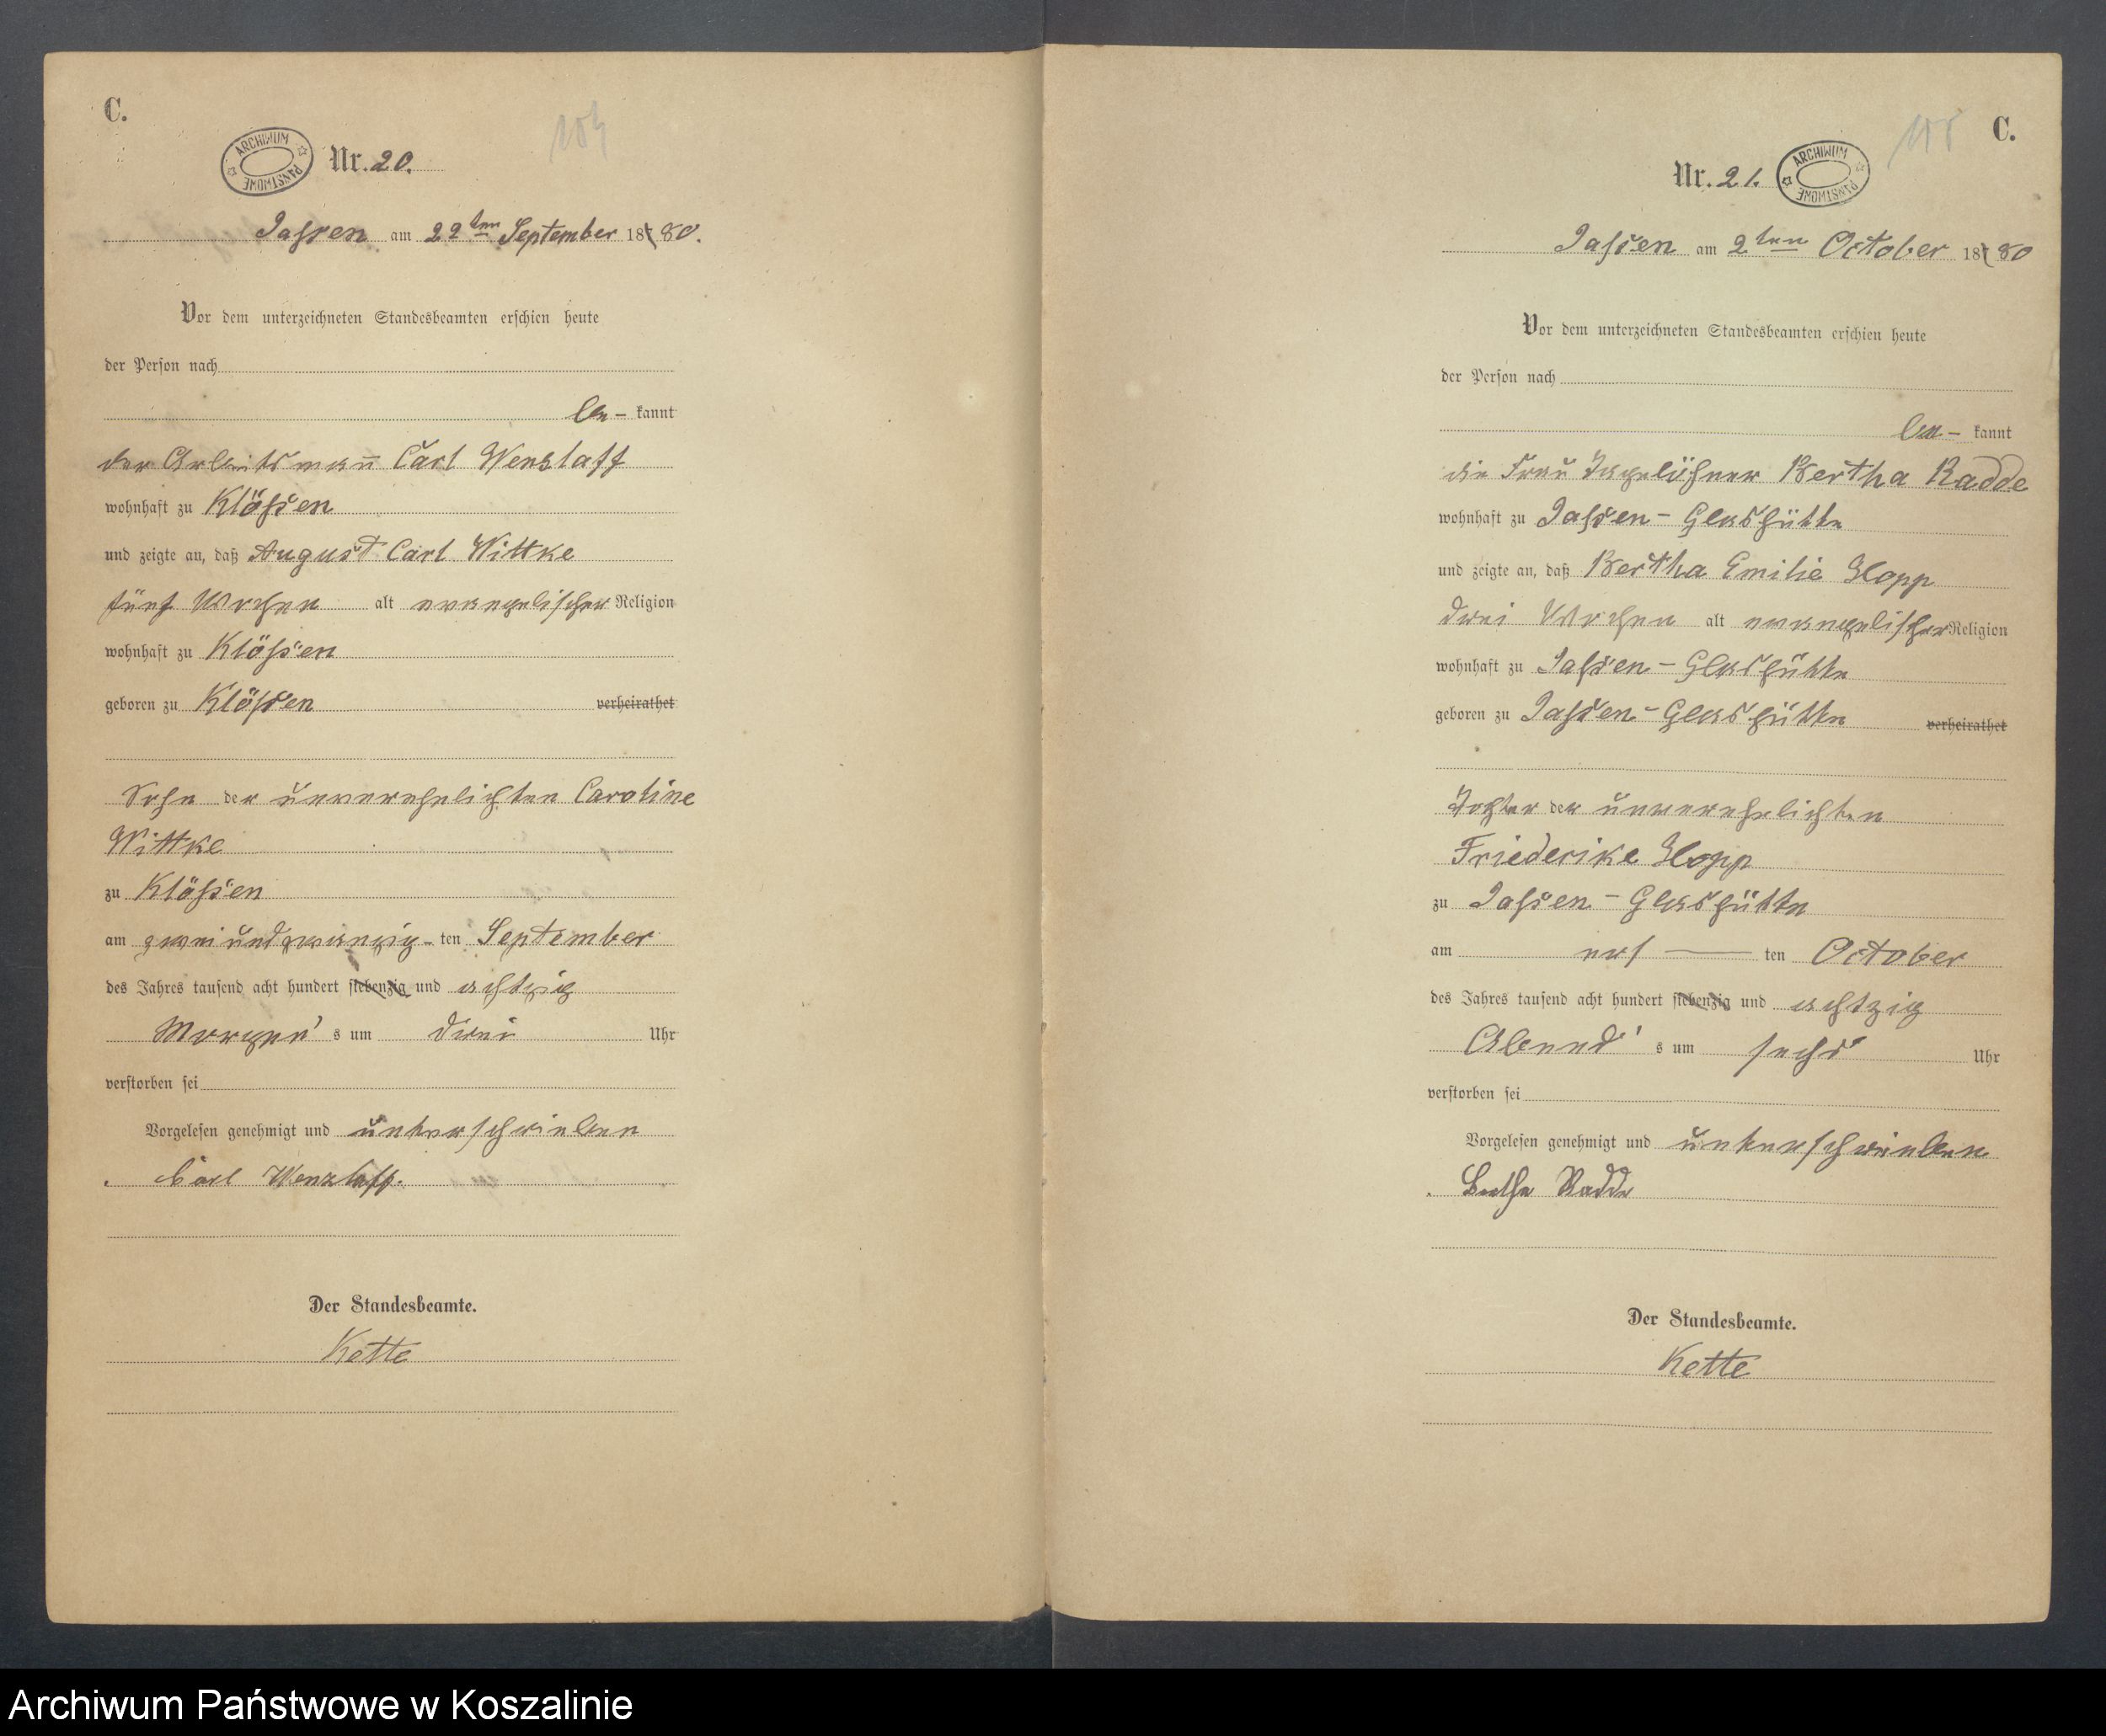 C.
104
ARCHIWUM PAŃSTWOWE
Nr. 20.
Jassen am 22ten September 1880.
Vor dem unterzeichneten Standesbeamten erschien heute
der Person nach
be- kannt
der Arbeitsmann Carl Wenslaff
wohnhaft zu Klössen
und zeigte an, daß August Carl Wittke
fünf Wochen alt evangelischer Religion
wohnhaft zu Klössen
geboren zu Klössen verheirathet
Sohn der unverehelichten Caroline
Wittke
zu Klössen
am zweiundzwanzig-ten September
des Jahres tausend acht hundert siebenzig und achtzig
Morgen's um drei Uhr
verstorben sei
Vorgelesen genehmigt und unterschrieben
Carl Wenzlaff.
Der Standesbeamte.
Kette
C.
105
Nr. 21.
ARCHIWUM PAŃSTWOWE
Jassen am 2ten October 1880
Vor dem unterzeichneten Standesbeamten erschien heute
der Person nach
be- kannt
die Frau Tagelöhner Bertha Radde
wohnhaft zu Jassen-Glashütte
und zeigte an, daß Bertha Emilie Hopp
drei Wochen alt evangelischer Religion
wohnhaft zu Jassen-Glashütte
geboren zu Jassen-Glashütte verheirathet
Tochter der unverehelichten
Friederike Hopp
zu Jassen-Glashütte
am ers — ten October
des Jahres tausend acht hundert siebenzig und achtzig
Abend's um sechs Uhr
verstorben sei
Vorgelesen genehmigt und unterschrieben
Bertha Radde
Der Standesbeamte.
Kette
Archiwum Państwowe w Koszalinie